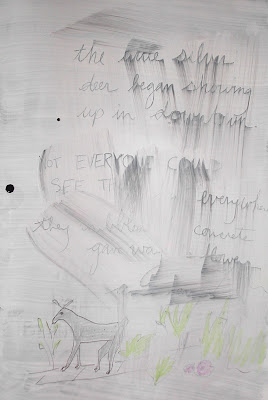 the little silver
deer began showing
up in downtown.
NOT EVERYONE COULD
SEE TH
everywhere
they concrete
gave way flowers